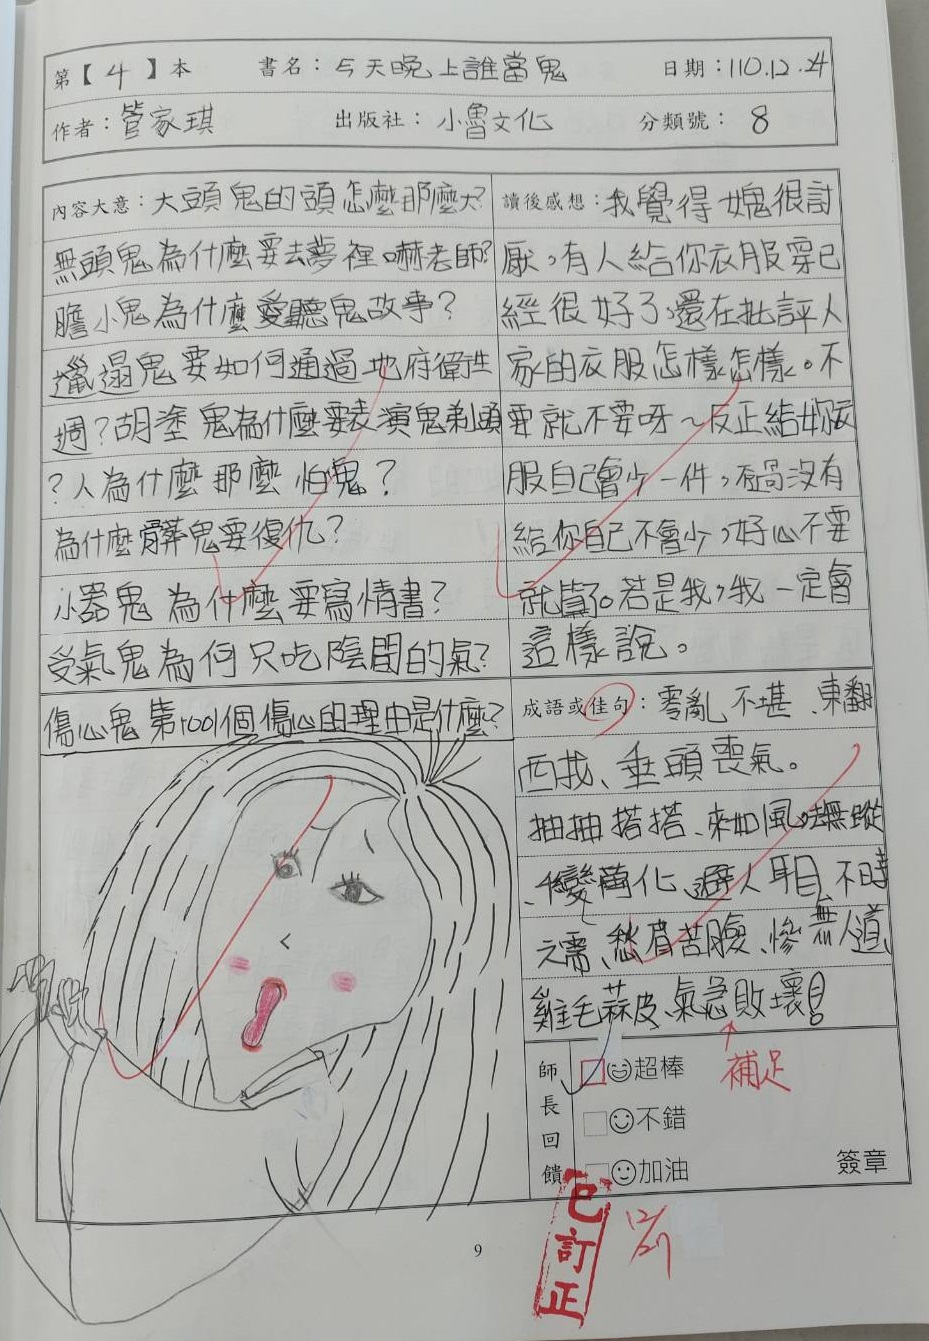 第【4】本 書名：今天晚上誰當鬼 日期：110.12.24
作者：管家琪 出版社：小魯文化 分類號：8
內容大意：大頭鬼的頭怎麼那麼大?
無頭鬼為什麼要去夢裡嚇老師?
膽小鬼為什麼愛聽鬼故事?
邋遢鬼要如何通過地府衛生
週?胡塗鬼為什麼要表演鬼剃頭
?人為什麼那麼怕鬼?
為什麼髒鬼要復仇?
小器鬼為什麼要寫情書?
受氣鬼為何只吃陰間的氣?
傷心鬼第1001個傷心的理由是什麼?
讀後感想：我覺得女鬼很討
厭，有人給你衣服穿已
經很好了，還在批評人
家的衣服怎樣怎樣。不
要就不要呀～反正給妳衣
服自己會少一件，不過沒有
給你自己不會少，好心不要
就算了。若是我，我一定會
這樣說。
成語或佳句：零亂不堪、東翻
西找、垂頭喪氣。
抽抽搭搭、來如風，去無蹤
、千變萬化、避人耳目、不時
之需、愁眉苦臉、慘無人道、
雞毛蒜皮、氣急敗壞!
補足
師長回饋
超棒
不錯
加油
簽章
已訂正
12/21
9